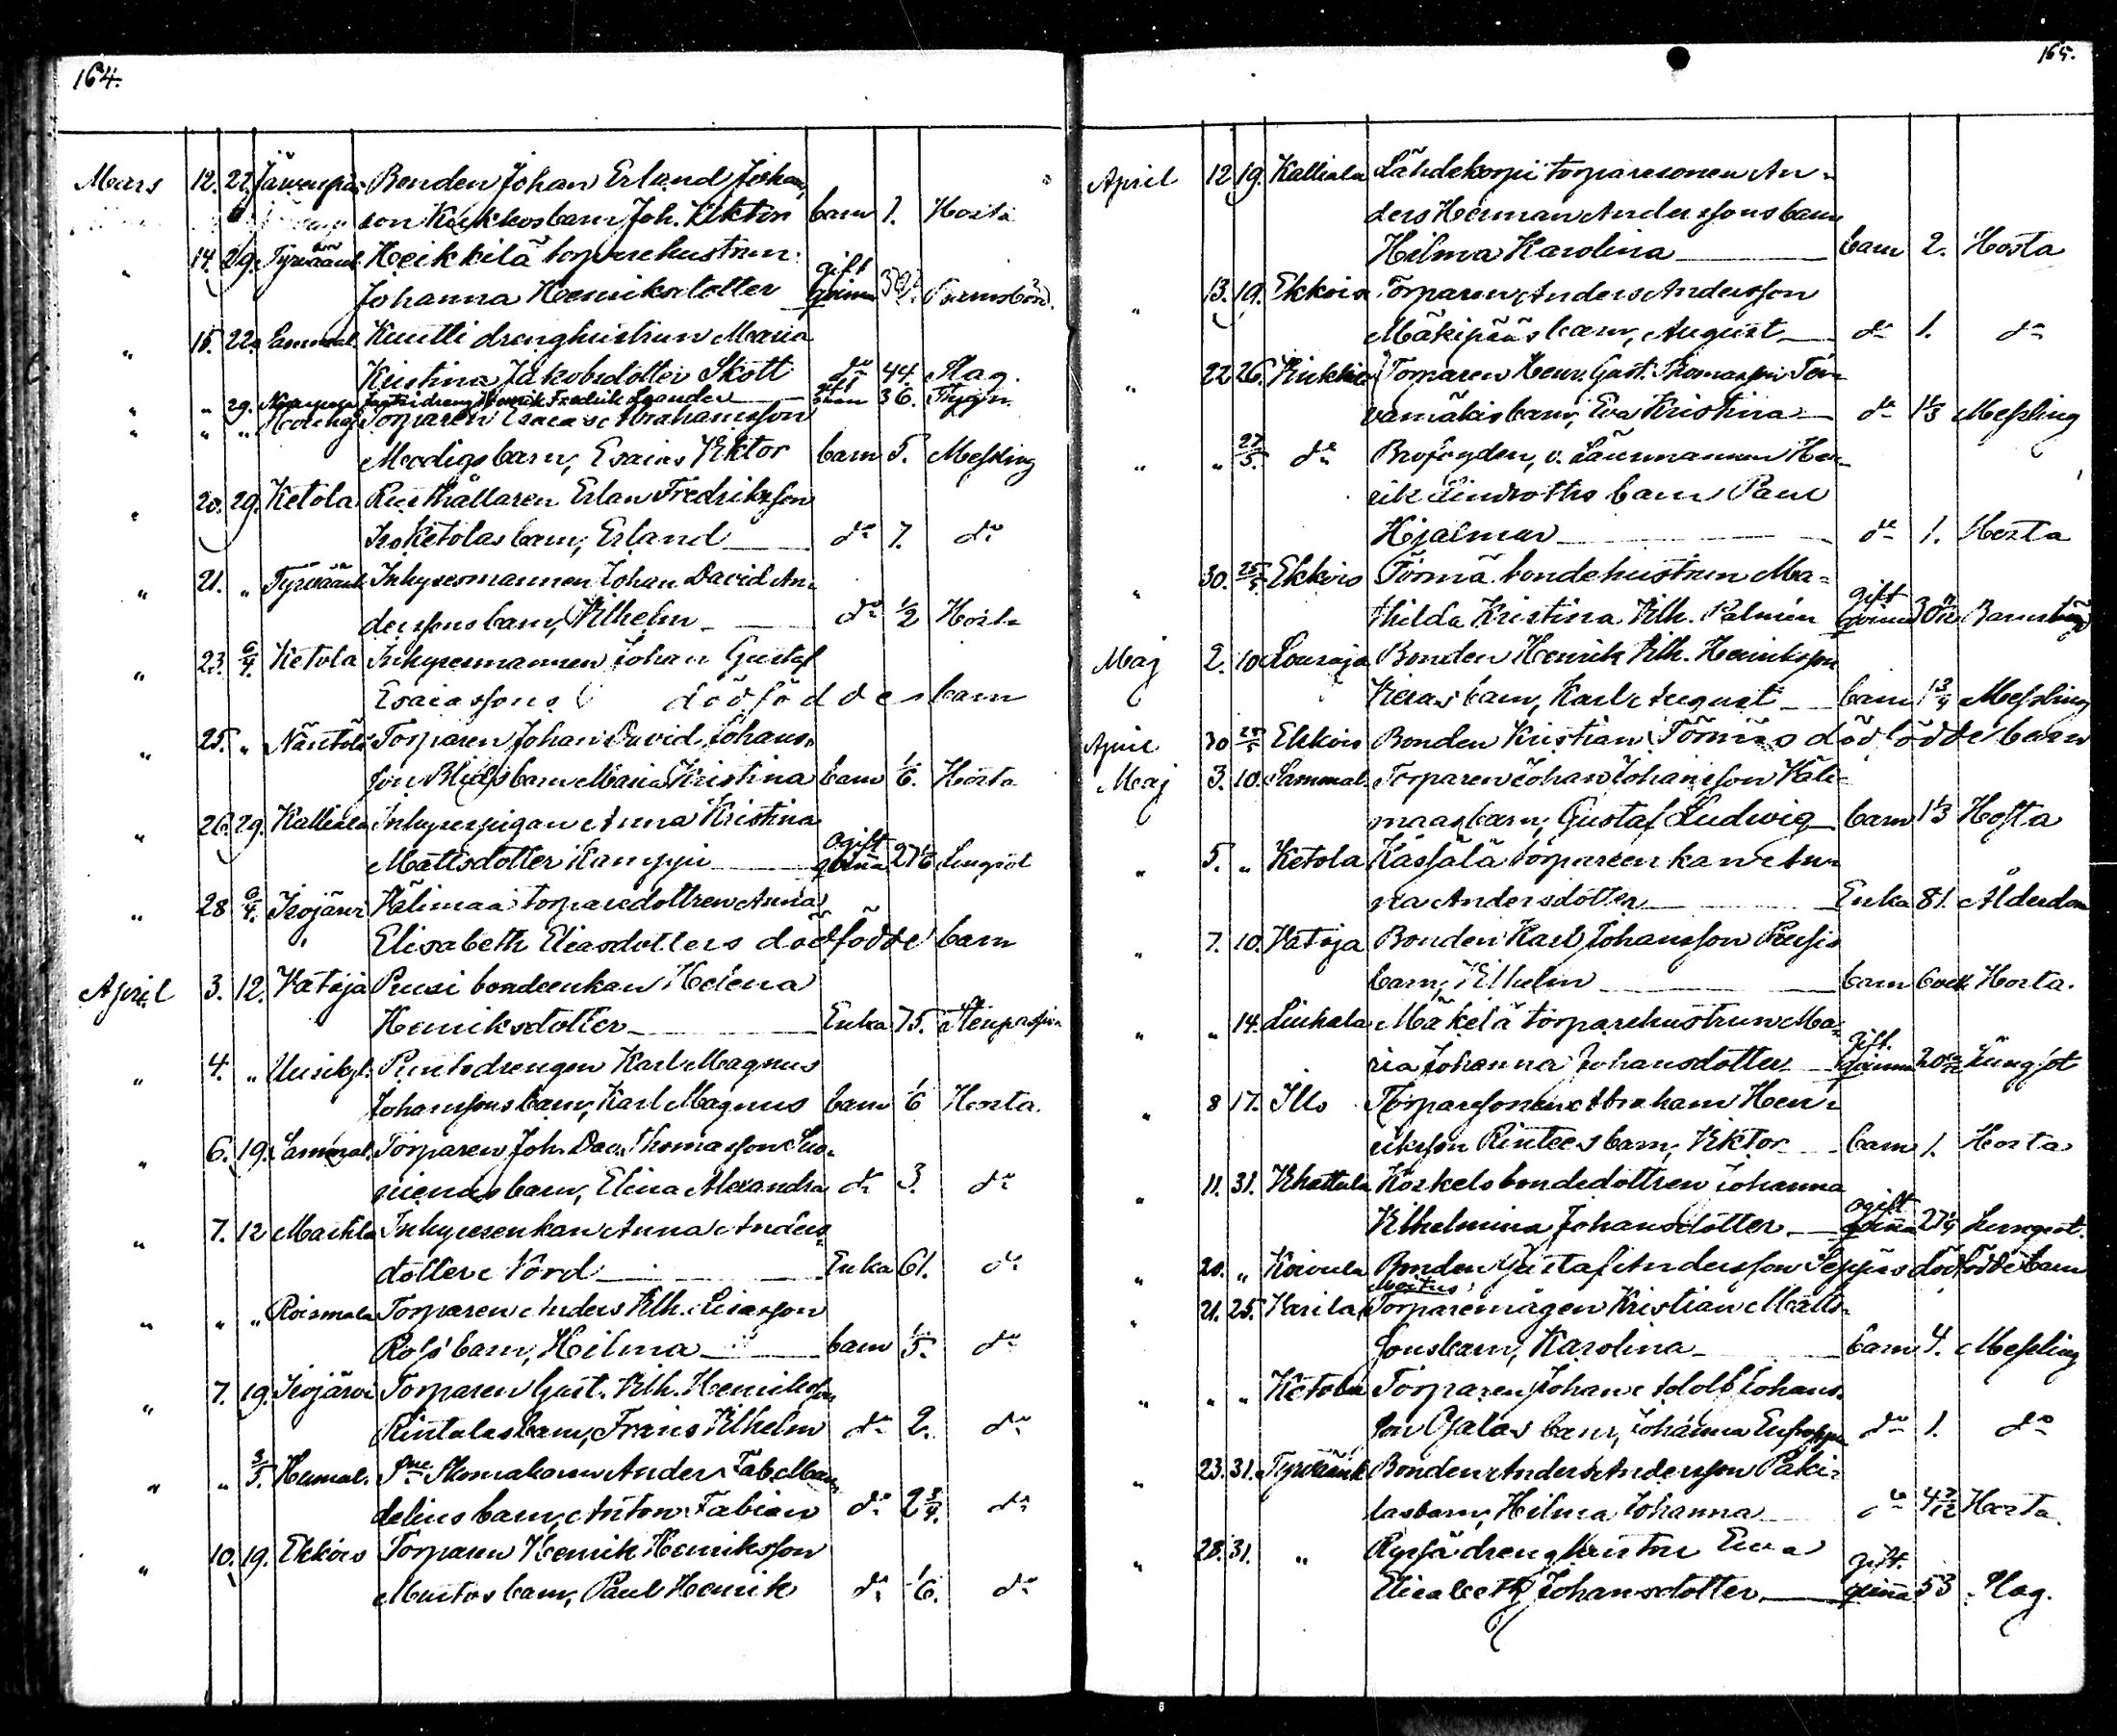 164.
Mars 12. 22. Järvenpää Bonden Johan Erland Johans
son Kukkos barn Joh. Viktor barn 1. Hosta
" 14. 29. Tyrvään k. Heikkilä torparehustrun
Johanna Henriksdotter gift qvinna Barnsbörd.
" 15. 22. Sammal. Knutti dränghustrun Maria
Kristina Jakobsdotter Skott do 44. Slag.
" " 29. dräng Henrik Fredrik Leander 36.
" " " Torparen Esaias Abrahamsson
Modigs barn, Esaias Viktor barn 5. Messling
" 20. 29. Ketola Rusthållaren Erlan Fredriksson
Isoketolas barn, Erland do 7. do
" 21. " Tyrvään k. Inhysesmannen Johan David An-
derssons barn, Vilhelm do 1/2 Hosta
" 23. 6/4. Ketola Inhysesmannen Johan Gustaf
Esaiassons dödföddes barn
" 25. " Näntölä Torparen Johan David Johans-
son barn Maria Kristina barn 1/6. Hosta
" 26. 29. Kalliala Inhysespigan Anna Kristina
Mattsdotter Kamppi Ogift qvinna Lungsot
" 28 6/4. Isojärvi Kälimaa torparedottren Anna
Elisabeth Eliasdotters dödfödde barn
April 3. 12. Vataja Pusi bondeenkan Helena
Henriksdotter Enka 75. Stenpassion
" 4. " Uusikyl. Punts drengen Karl Magnus
Johanssons barn, Karl Magnus barn 1/6 Hosta.
" 6. 19. Sammal. Torparen Joh. Dav. Thomasson Suo-
niemis barn, Elina Alexandra do 3. do
" 7. 12 Marttila Inhysesenkan Anna Anders-
dotter Nord Enka 61. do
" " " Roismala Torparen Anders Vilh. Eliasson
Ross' barn, Hilma barn 1/5. do
" 7. 19. Isojärvi Torparen Gust. Vilh. Henriksson
Rintalas barn, Frans Vilhelm do 2. do
" " 3/5. Hannul. Skomakaren Anders Fab. Man-
delins barn, Anton Fabian do 2 3/4. do
" 10. 19. Ekkois Torparen Henrik Henriksson
Mustas barn, Paul Henrik do 1/6. do
165.
April 12 19. Kalliala Lähdekorpi torparesonen An-
ders Herman Anderssons barn
Hilma Karolina barn 2. Hosta
" 13. 19. Ekkois Torparen Anders Andersson
Mäkipääs barn, August do 1. do
" 22 26. Kiukkis Torparen Henr. Gust. Thomasson Ter-
vamäkis barn, Eva Kristina do 1 1/3 Messling
" " 27/5. do Brofogden, v. Länsmannen Hen-
rik Lindroths barn Paul
Hjalmar do 1. Hosta
" 30. 25/5 Ekkois Törmä bondehustrun Ma-
thilda Kristina Vilh. Palmén gift qvinna Barnsbörd
Maj 2. 10 Louraja Bonden Henrik Vilh. Henriksson
Vieras barn, Karl August barn 1 3/4 Messling
April 30 25/5 Ekkois Bonden Kristian Törmäs dödfödde barn
Maj 3. 10. Sammal. Torparen Johan Johansson Käli-
maas barn, Gustaf Ludvig barn 1 1/3 Hosta
" 5. " Ketola Kässälä torpareenkan An-
na Andersdotter Enka 81. Ålderdom
" 7. 10. Vataja Bonden Karl Johansson Pusis
barn, Vilhelm barn 6 veck. Hosta.
" " 14. Liuhala Mäkelä torparehustrun Ma-
ria Johanna Johansdotter gift. qvinna Lungsot
" 8 17. Illo Torparesonen Abraham Hen-
riksson Rintees barn, Viktor barn 1. Hosta
" 11. 31. Vihattula Koskelo bondedottren Johanna
Vilhelmina Johansdotter ogift qvinna 27 1/4 Lungsot.
" 20. " Koivula Bonden Gustaf Andersson Seppäs dödfödde barn
" 21. 25. Karila Torparemågen Kristian Matts-
sons barn, Karolina barn 4. Messling
" " " Ketola Torparen Johan Adolf Johans-
son Ojalas barn, Johanna do 1. do
" 23. 31. Tyrvään k. Bonden Anders Andersson Paki-
las barn, Hilma Johanna do 4 7/12 Hosta
" 28. 31. " Ryssä dränghustru Eva
Elisabeth Johansdotter gift. qvinna 53 Slag.